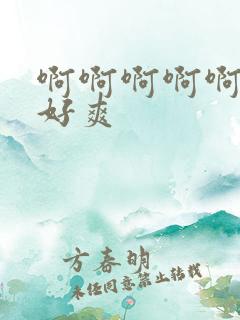 啊啊啊啊啊
好爽
方春明
未经同意禁止转载